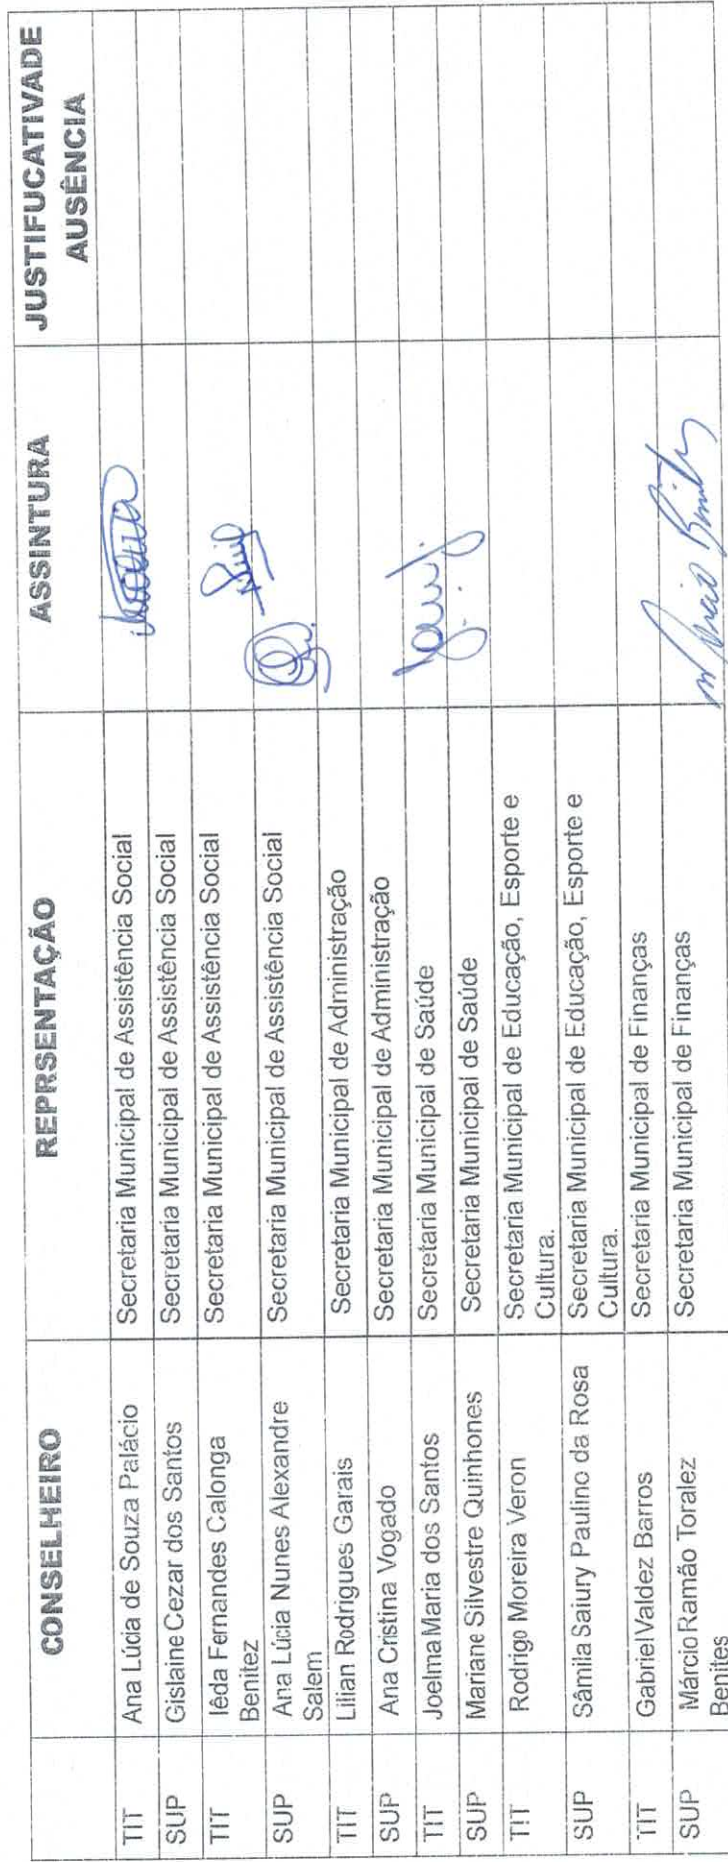 CONSELHEIRO REPRSENTAÇÃO ASSINTURA JUSTIFUCATIVADE
AUSÊNCIA
TIT Ana Lúcia de Souza Palácio Secretaria Municipal de Assistência Social
SUP Gislaine Cezar dos Santos Secretaria Municipal de Assistência Social
TIT Iêda Fernandes Calonga Secretaria Municipal de Assistência Social
Benitez
SUP Ana Lúcia Nunes Alexandre Secretaria Municipal de Assistência Social
Salem
TIT Lilian Rodrigues Garais Secretaria Municipal de Administração
SUP Ana Cristina Vogado Secretaria Municipal de Administração
TIT Joelma Maria dos Santos Secretaria Municipal de Saúde
SUP Mariane Silvestre Quinhones Secretaria Municipal de Saúde
TIT Rodrigo Moreira Veron Secretaria Municipal de Educação, Esporte e
Cultura.
SUP Sâmila Saiury Paulino da Rosa Secretaria Municipal de Educação, Esporte e
Cultura.
TIT Gabriel Valdez Barros Secretaria Municipal de Finanças
SUP Márcio Ramão Toralez Secretaria Municipal de Finanças
Benites